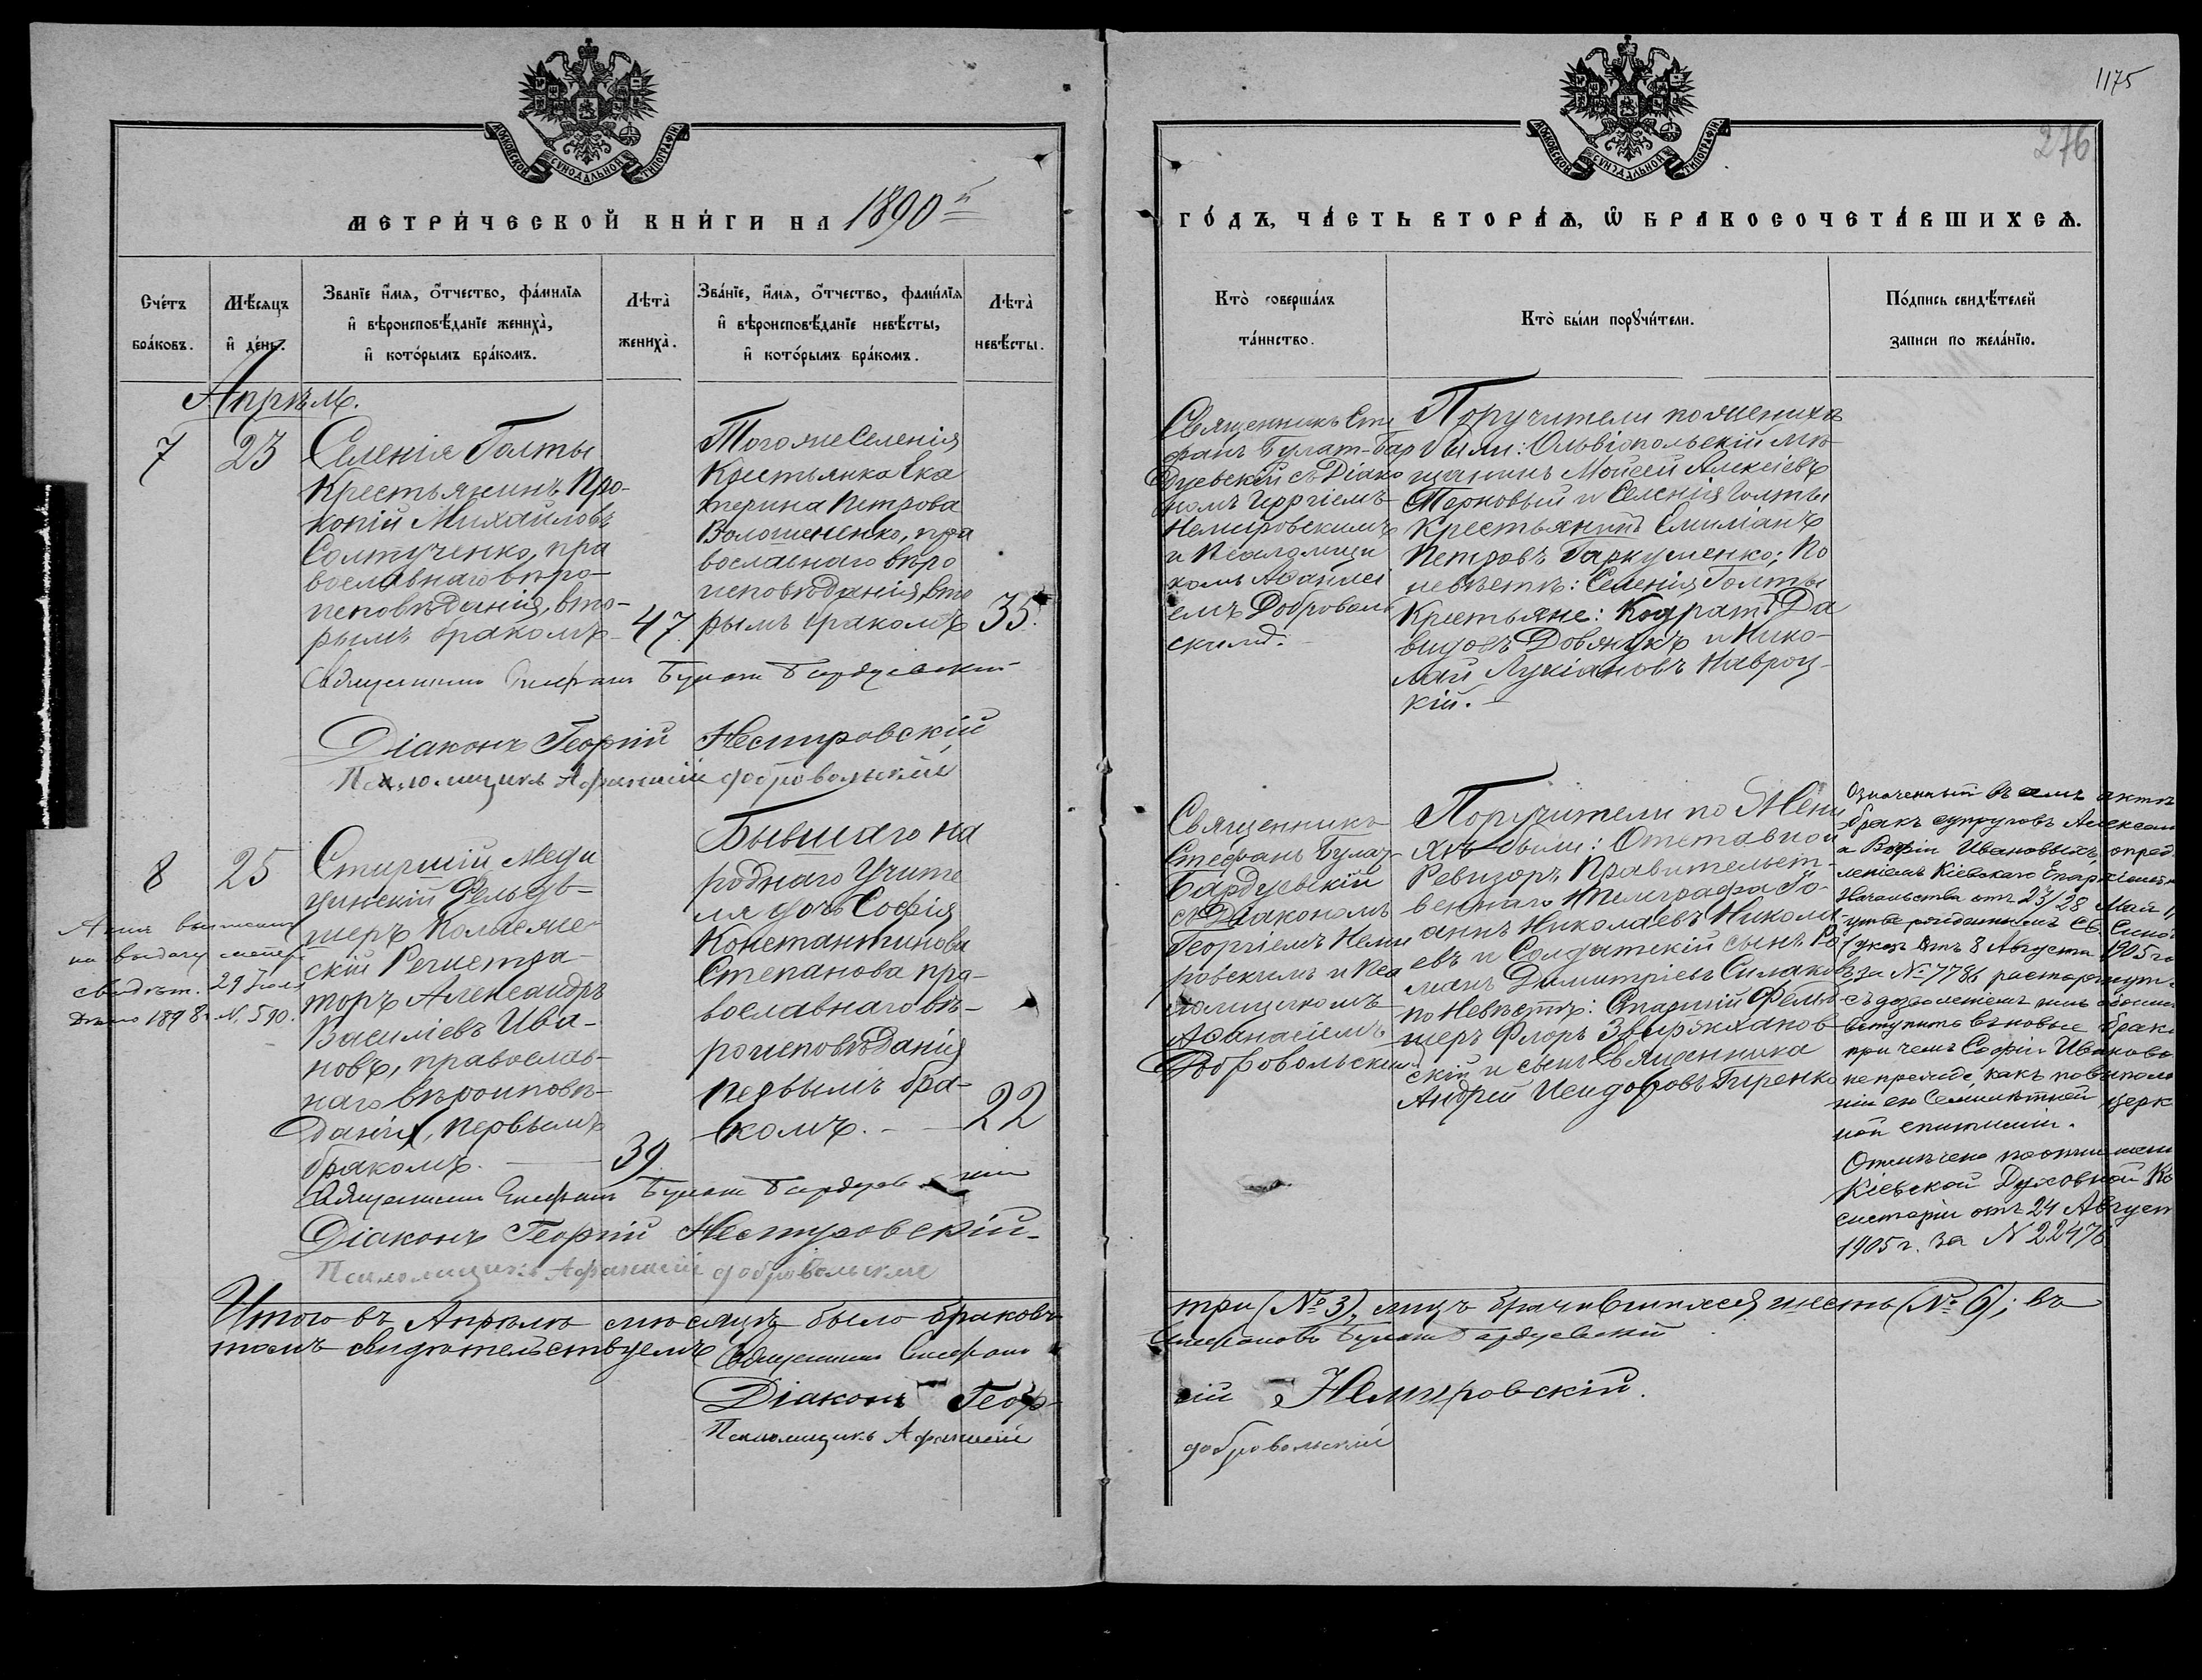 1175
276
МОСКОВСКОЙ СУНОДАЛЬНОЙ ТИПОГРАФІИ
МОСКОВСКОЙ СУНОДАЛЬНОЙ ТИПОГРАФІИ
МЕТРИ́ЧЕСКОЙ КНИ́ГИ НА 1890 й
ГО́ДЪ, ЧА́СТЬ ВТОРА́Ѧ, Ѡ҆ БРАКОСОЧЕТА́ВШИХСѦ.
Сче́тъ
бра́ковъ.
Мѣ́сѧцъ
и҆ де́нь.
Зва́нїе и҆́мѧ, ѻ҆́тчество, фамѝлїѧ
и҆ вѣроисповѣ́данїе жениха̀,
и҆ кото́рымъ бра́комъ.
Лѣта̀
жениха̀.
Зва́нїе, и҆́мѧ, ѻ҆́тчество, фами́лїѧ
и҆ вѣроисповѣ́данїе невѣ́сты,
и҆ кото́рымъ бра́комъ.
Лѣта̀
невѣ́сты.
Кто̀ соверша́лъ
та́инство.
Кто̀ бы́ли порꙋчи́тели.
По́дпись свидѣ́телей
записи по жела́нїю.
Апрѣль.
7
23
Селенія Голты
Крестьянинъ Про-
копій Михайловъ
Солтученко, пра
вославнаго вѣро-
исповѣданія, вто-
рымъ бракомъ
47.
Того же Селенія
Крестьянка Ека
терина Петрова
Волошененко, пра
вославнаго вѣро
исповѣданія, вто
рымъ бракомъ
35.
Священникъ Сте
фанъ Булат-Бар
дуевскій съ Діако
номъ Георгіемъ
Немировскимъ
и Псаломщи
комъ Аѳанасі
емъ Добровол
скимъ.
Поручители по женихѣ
были: Ольвіопольскій мѣ
щанинъ Мойсей Алексіевъ
Терновый и Селенія Голты
Крестьянинъ Емиліанъ
Петровъ Гаркуменко; По
невѣстѣ: Селенія Голты
Крестьяне: Кодратъ Да
видовъ Довянукъ и Нико-
лай Лукіановъ Навроц-
кій.
Священникъ Стефанъ Булат Бардуевскій
Діаконъ Георгій Немировскій
Псаломщикъ Афанасій Добровольскій
8
25
Старшій Меди
цинскій Фельд-
шеръ Коллеже-
скій Регистра-
торъ Александръ
Василіевъ Ива-
новъ, православ-
наго вѣроисповѣ-
данія, первымъ
бракомъ.
39.
Бывшаго на
роднаго Учите
ля дочь Софія
Константинова
Степанова пра-
вославнаго вѣ-
роисповѣданія
первымъ бра-
комъ.
22
на выдачу метр.
свидѣт. 29 Іюля
1898 г. № 590.
Священникъ
Стефанъ Булат
Бардуевскій
съ Діакономъ
Георгіемъ Неми
ровскимъ и Пса
ломщикомъ
Аѳанасіемъ
Добровольским
Поручители по Жени
хѣ были: Отставной
Ревизоръ Правительст-
веннаго Телеграфа Іо-
аннъ Николаевъ Никола
евъ и Солдатскій сынъ Ро
манъ Димитріевъ Силаковъ
по Невѣстѣ: Старшій Фельд
шеръ Флоръ
скій и сынъ Священника
Андрей Исидоровъ Гиренко
Означенный въ семъ актѣ
бракъ супруговъ Алексан
а Софіи Ивановыхъ, опред
леніемъ Кіевскаго Епархіальн
Начальства отъ 23/28 Мая
утвержденнымъ Св. Сино
(указъ отъ 8 Августа 1905 го
за № 7786 расторгнутъ
съ дозволеніемъ имъ обоимъ
вступить въ новые браки
при чемъ Софіи Ивановой
не прежде, какъ по выполне
ніи ею семилѣтней церк
ной епитиміи.
Отмѣчено по отношенію
Кіевской Духовной Ко
систоріи отъ 24 Август
1905 г. за № 22476
Священникъ Стефанъ Булат Бардуевскій
Діаконъ Георгій Немировскій
Псаломщикъ Афанасій Добровольскій
Итого въ Апрѣлѣ мѣсяцѣ было браковъ три (№ 3), лицъ брачившихся шесть (№ 6); въ
томъ свидѣтельствуемъ Священникъ Стефанъ Стефановъ Булат Бардуевскій
Діаконъ Георгій Немировскій.
Псаломщикъ Афанасій Добровольскій